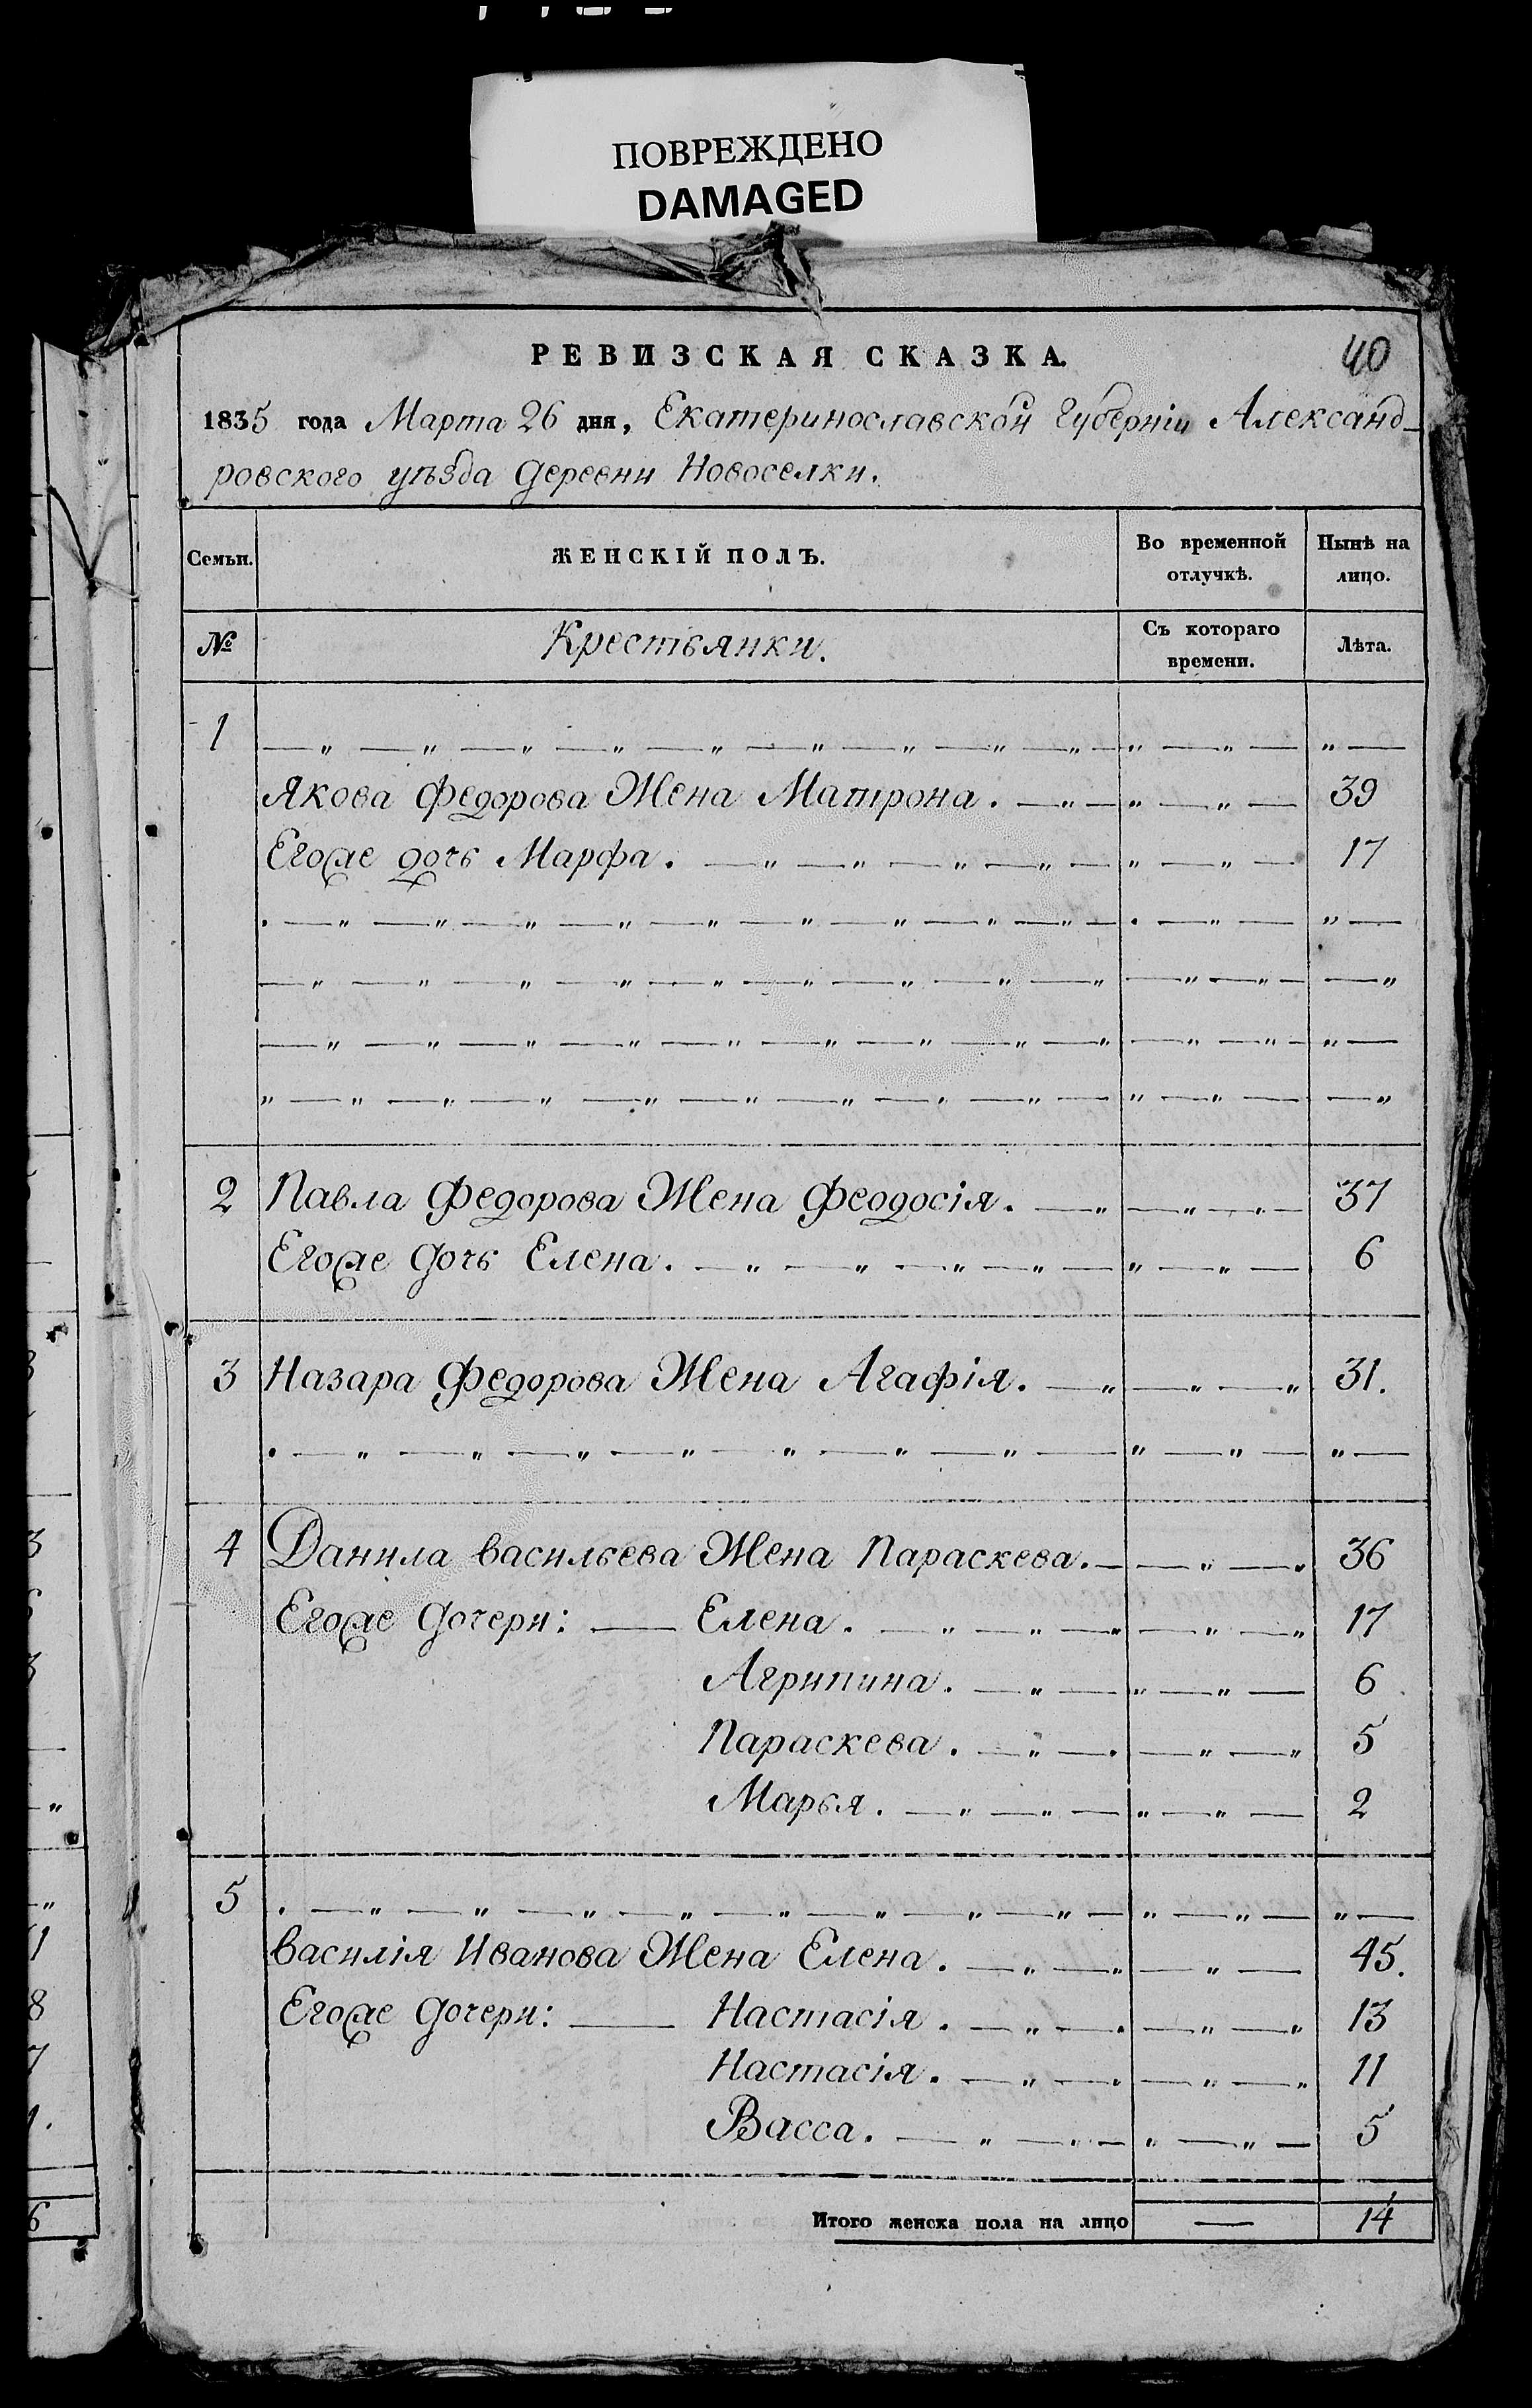 ПОВРЕЖДЕНО
DAMAGED
РЕВИЗСКАЯ СКАЗКА.
40
1835 года Марта 26 дня, Екатеринославской Губерніи Александ-
ровского уѣзда деревни Новоселки.
Семьи.
ЖЕНСКІЙ ПОЛЪ.
Во временной отлучкѣ.
Нынѣ на лицо.
№
Крестьянки.
Съ котораго времени.
Лѣта.
1 — „ — „ — „ — „ — „ — „ — „ — „ — „ — „ — „ — „ —
Якова Федорова Жена Матрона. — „ — „ — „ — 39
Егоже дочь Марфа. — „ — „ — „ — „ — „ — „ — 17
. — „ — „ — „ — „ — „ — „ — „ — „ — „ — . — „ — „ —
— „ — „ — „ — „ — „ — „ — „ — „ — „ — „ — „ — — „
— „ — „ — „ — „ — „ — „ — „ — „ — „ — „ — „ — „ —
„ — „ — „ — „ — „ — „ — „ — „ — „ — „ — „ — — „
2 Павла Федорова Жена Феодосія. — „ — „ — „ — 37
Егоже дочь Елена. — „ — „ — „ — „ — „ — „ — 6
3 Назара Федорова Жена Агафія. — „ — „ — „ 31.
. — „ — „ — „ — „ — „ — „ — „ — „ — „ — „ —
4 Данила Васильева Жена Параскева. — — „ — „ 36
Егоже дочери: — Елена. — „ — „ — „ — „ — „ 17
Агрипина. — „ — „ — „ — 6
Параскева. — „ — . — „ — „ 5
Марья. — „ — „ — „ — „ — 2
5 . — „ — „ — „ — „ — „ — „ — „ — „ — „ — „ — „ —
Василія Иванова Жена Елена. — „ — „ — „ — 45.
Егоже дочери: — Настасія. — „ — . — „ — „ 13
Настасія. — „ — „ — „ — „ 11
Васса. — „ — „ — „ — „ — 5
Итого женска пола на лицо — 14